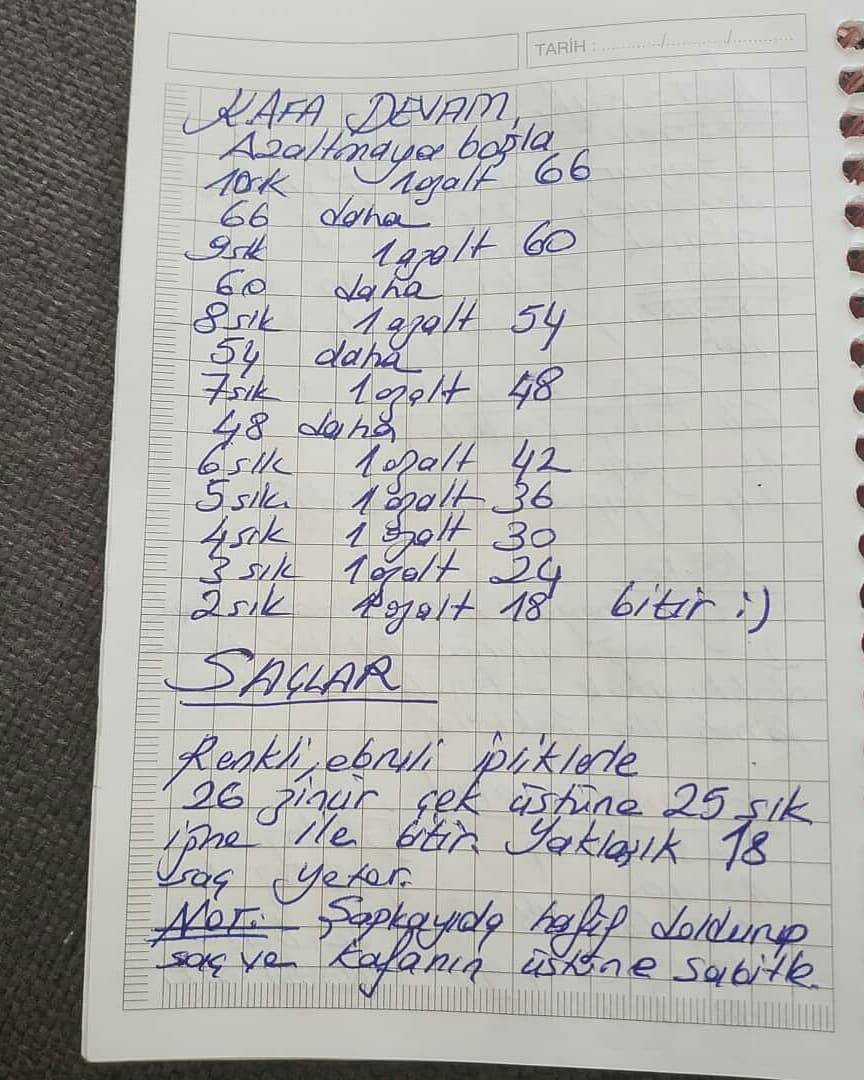 TARİH : ............/............/............
KAFA DEVAM,
Azaltmaya başla
10sık 1azalt 66
66 daha
9sık 1azalt 60
60 daha
8sık 1azalt 54
54 daha
7sık 1azalt 48
48 daha
6sık 1azalt 42
5sık 1azalt 36
4sık 1azalt 30
3sık 1azalt 24
2sık 1azalt 18 bitir :)
SAÇLAR
Renkli, ebruli ipliklerle
26 zincir çek üstüne 25 sık
iğne ile bitir. Yaklaşık 18
saç yeter.
Not: Şapkayıda hafif doldurup
saç ve kafanın üstüne sabitle.